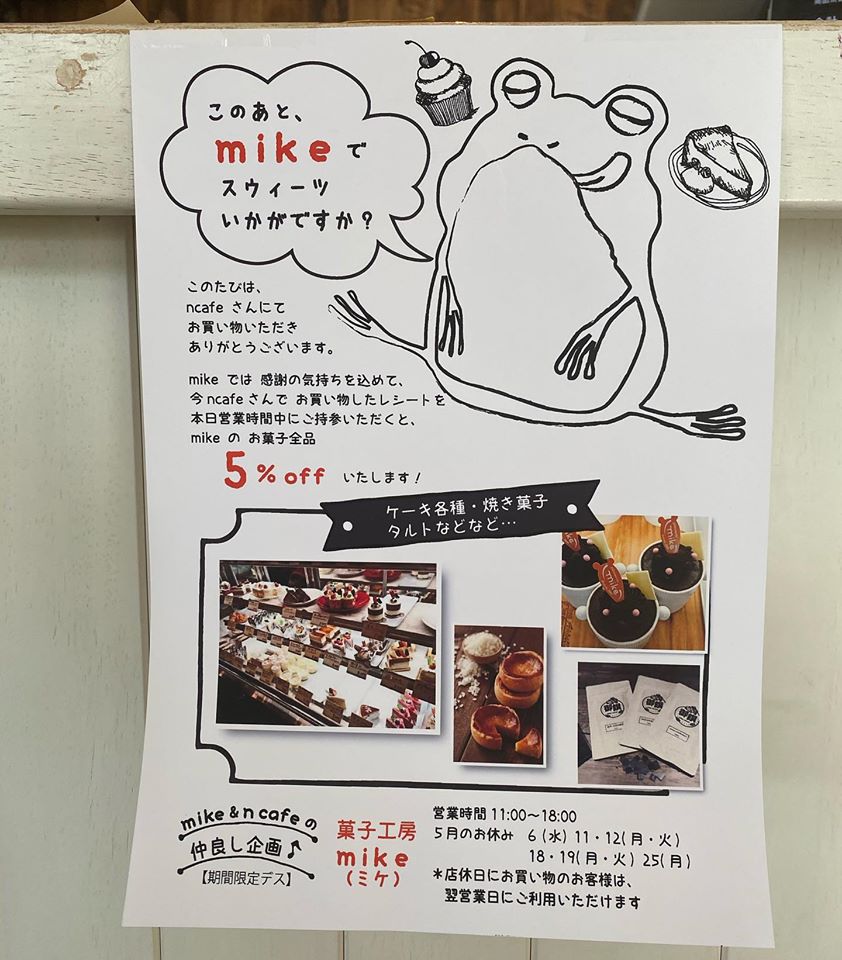 このあと、
mike で
スウィーツ
いかがですか？
このたびは、
ncafe さんにて
お買い物いただき
ありがとうございます。
mike では 感謝の気持ちを込めて、
今ncafeさんで お買い物したレシートを
本日営業時間中にご持参いただくと、
mike の お菓子全品
5%off いたします！
ケーキ各種・焼き菓子
タルトなどなど…
mike
mike
mike & n cafe の
仲良し企画♪
【期間限定デス】
菓子工房
mike
(ミケ)
営業時間 11:00〜18:00
5月のお休み 6(水) 11・12(月・火)
18・19(月・火) 25(月)
＊店休日にお買い物のお客様は、
翌営業日にご利用いただけます